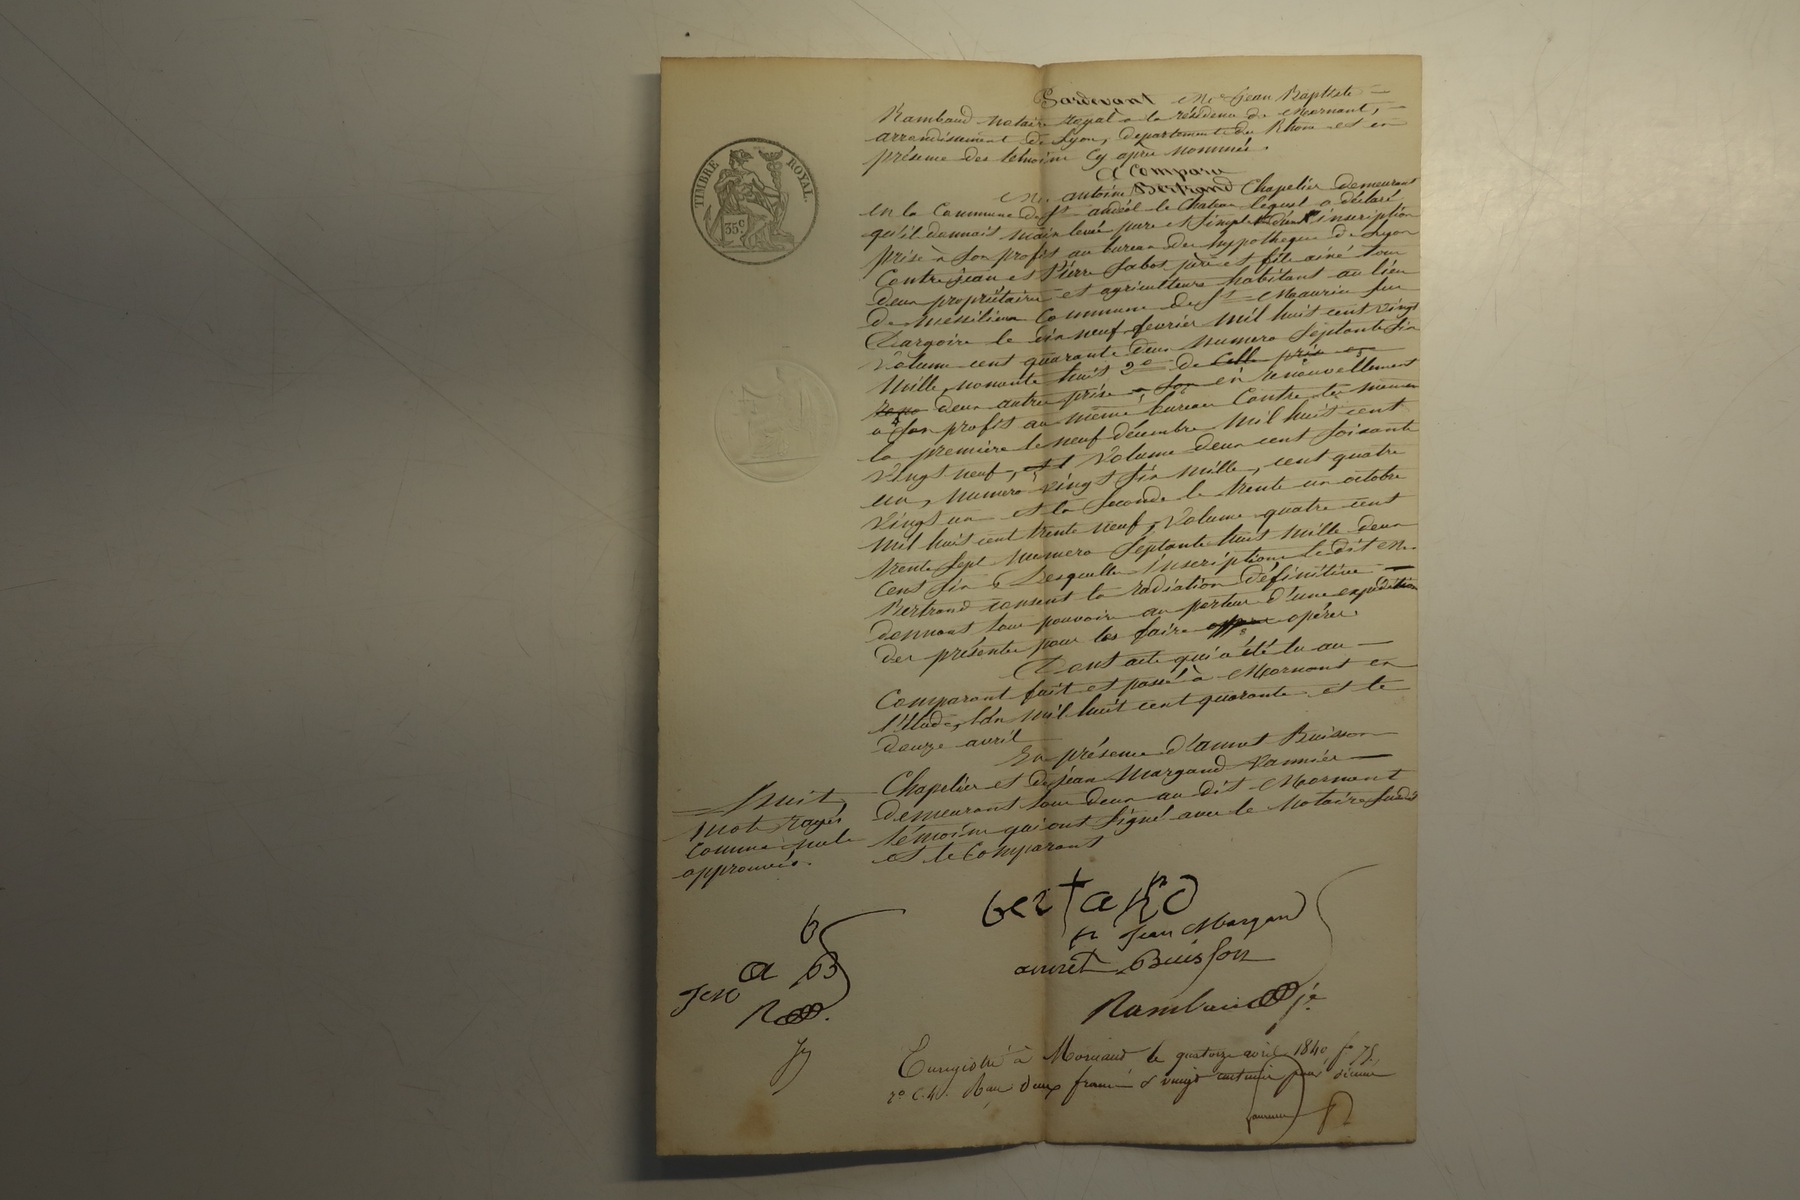 TIMBRE ROYAL.
35 c
Pardevant Me Jean Baptiste
Rambaud notaire royal à la résidence de Mornant,
arrondissement de Lyon, département du Rhône et en
présence des témoins cy après nommés.
A Comparu
Mr. antoine Bertrand Chapelier demeurant
en la Commune de St andéol le Chateau lequel a déclaré
qu'il donnait main levée pure et simple d'une inscription
prise à son profit au bureau des hypothèques de Lyon
Contre Jean et Pierre Sabot père et fils ainé tous
deux propriétaires et agriculteurs habitant au lieu
de Messilieux Commune de St Maurice sur
Dargoire le dix neuf février mil huit cent vingt
volume cent quarante deux numéro septante six
mille nonante huit 2o de celle prise en
deux autres prises à son en renouvellement
à son profit au même bureau Contre les mêmes
la première le neuf décembre mil huit cent
vingt neuf, et volume deux cent soixante
un, numéro vingt six mille, cent quatre
vingt un et la seconde le trente un octobre
mil huit cent trente neuf, volume quatre cent
trente sept numéro septante huit mille deux
cent six, desquelles inscriptions le dit Mr.
Bertrand consent la radiation définitive
donnant tout pouvoir au porteur d'une expédition
des présentes pour les faire opérer.
Dont acte qui a été lu au
Comparant fait et passé à Mornant en
l'étude, l'an mil huit cent quarante et le
douze avril
En présence d'annet Buisson
Chapelier et de Jean Margand vannier
demeurant tous deux au dit Mornant
témoins qui ont signé avec le Notaire susdit
et le Comparant
huit
mots rayés
comme nuls
approuvés.
bertrand
Jean Margand
annet Buisson
Rambaud
b
a B
R
Enregistré à Mornant le quatorze avril 1840 fo 75
ro c. 4. Reçu deux francs & vingt centimes pour décime